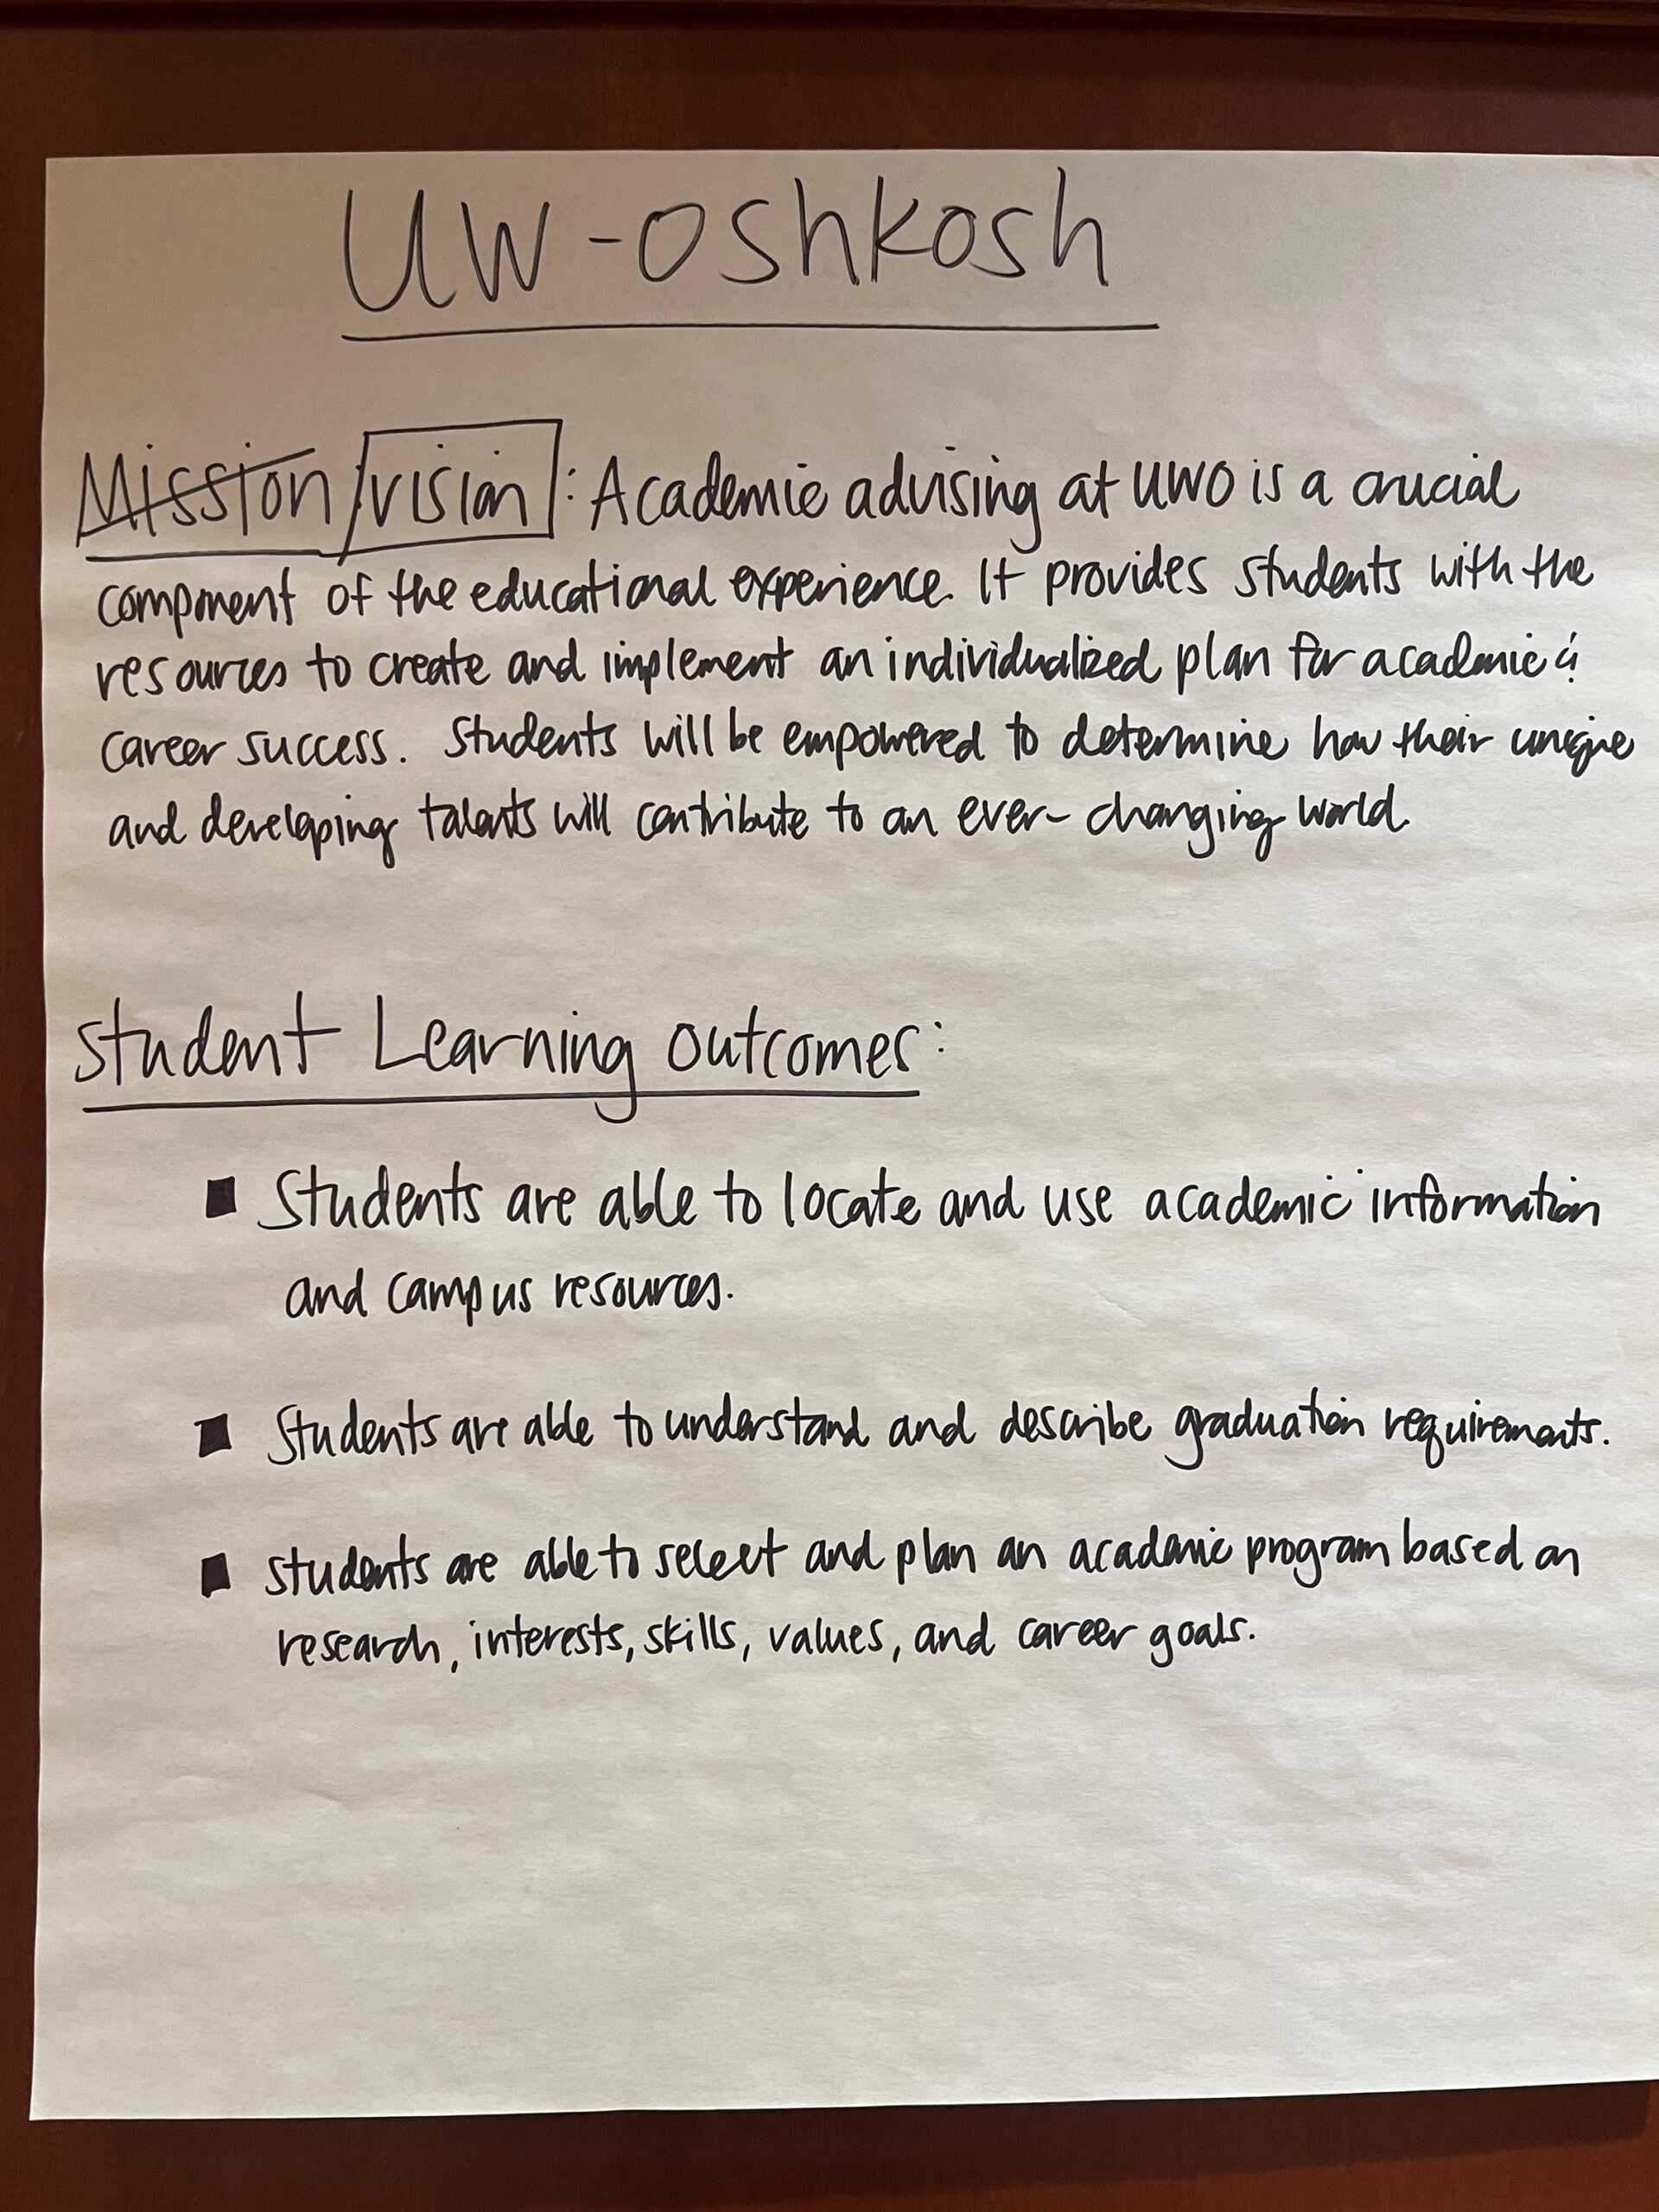 UW-Oshkosh
Mission/vision: Academic advising at UWO is a crucial
component of the educational experience. It provides students with the
resources to create and implement an individualized plan for academic &
career success. Students will be empowered to determine how their unique
and developing talents will contribute to an ever-changing world.
Student Learning Outcomes:
■ Students are able to locate and use academic information
and campus resources.
■ Students are able to understand and describe graduation requirements.
■ Students are able to select and plan an academic program based on
research, interests, skills, values, and career goals.